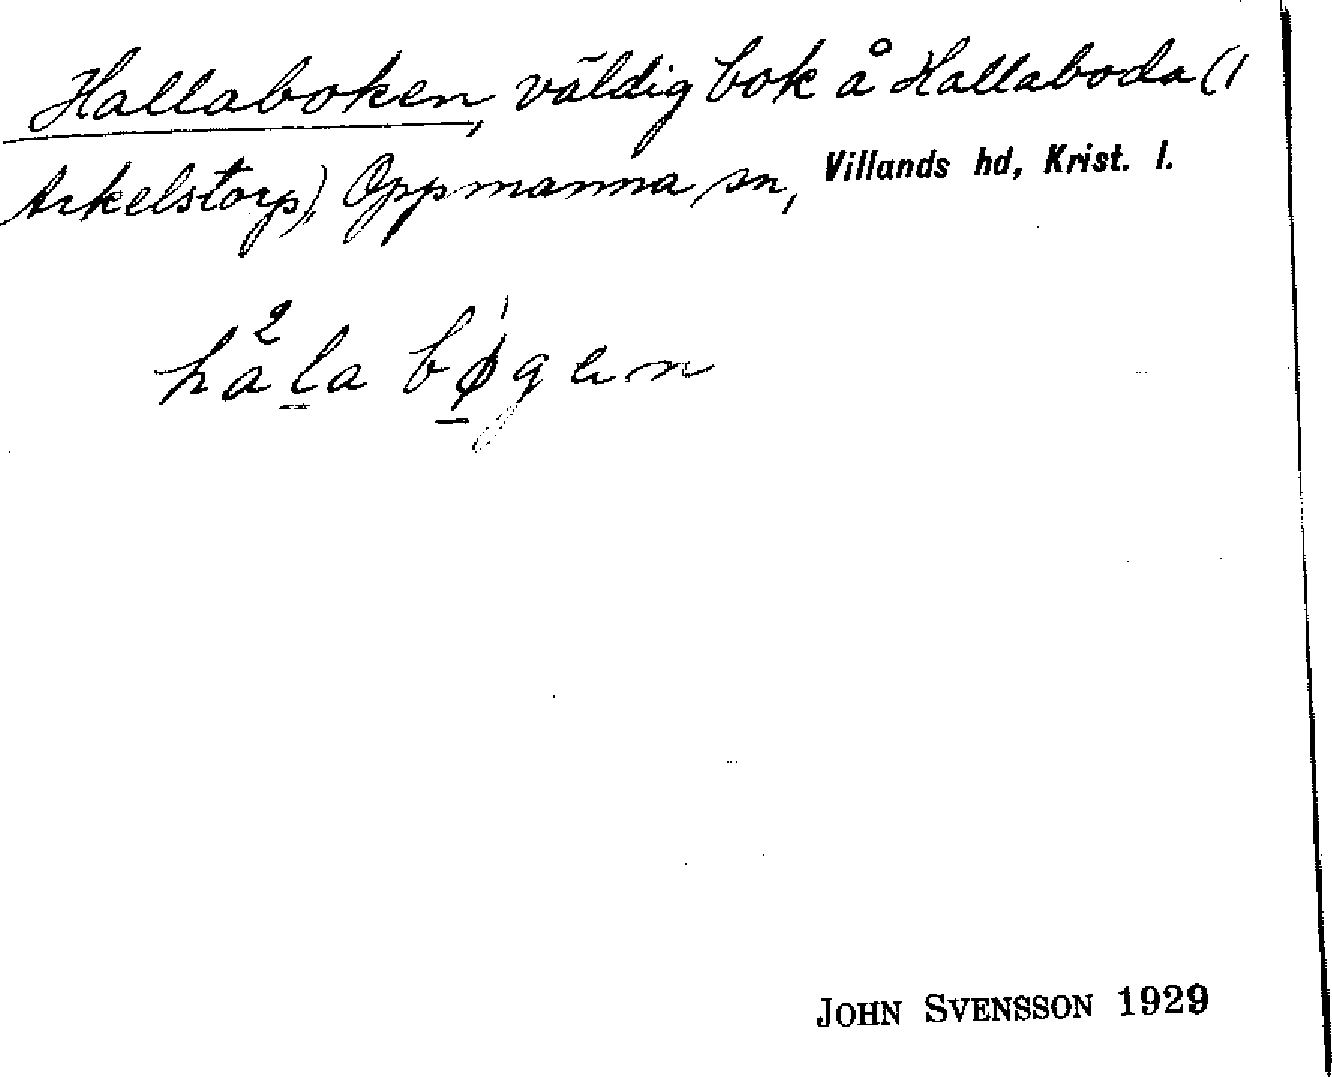 Hallaboken, väldig bok å Hallaboda (1
Arkelstorp), Oppmanna sn, Villands hd, Krist. l.
håla bøgen
JOHN SVENSSON 1929